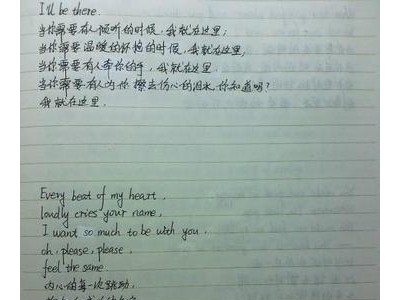 I'll be there.
当你需要有人倾听的时候，我就在这里；
当你需要温暖的怀抱的时候，我就在这里；
当你需要有人牵你的手，我就在这里.
当你需要有人为你擦去伤心的泪水，你知道吗？
我就在这里.
Every beat of my heart,
loudly cries your name,
I want so much to be with you,
oh, please, please,
feel the same.
内心的每一次跳动，